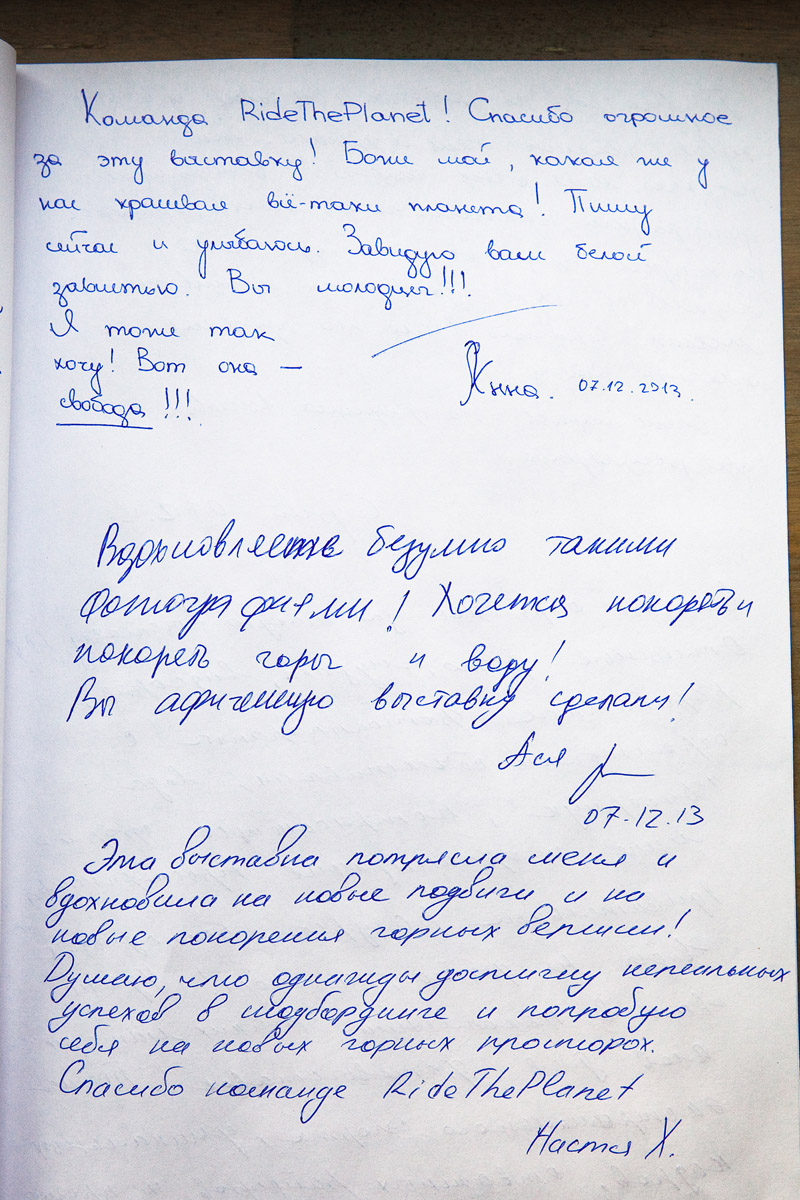 Команда RideThePlanet! Спасибо огромное
за эту выставку! Боже мой, какая же у
нас красивая всё-таки планета! Пишу
сейчас и улыбаюсь. Завидую вам белой
завистью. Вы молодцы!!!
Я тоже так
хочу! Вот она —
свобода!!!
07.12.2013.
Вдохновляете безумно такими
фотографиями! Хочется покорять и
покорять горы и воду!
Вы афигенную выставку сделали!
Ася
07.12.13
Эта выставка потрясла меня и
вдохновила на новые подвиги и на
новые покорения горных вершин!
Думаю, что однажды достигну нереальных
успехов в сноубординге и попробую
себя на новых горных просторох.
Спасибо команде RideThePlanet
Настя Х.